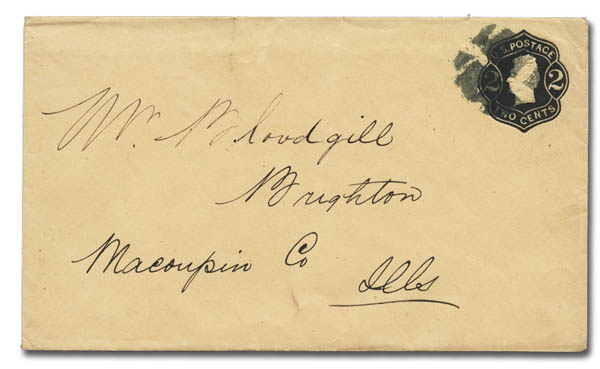 U.S. POSTAGE
2 2
TWO CENTS
Wm. Bloodgill
Brighton
Macoupin Co
Ills